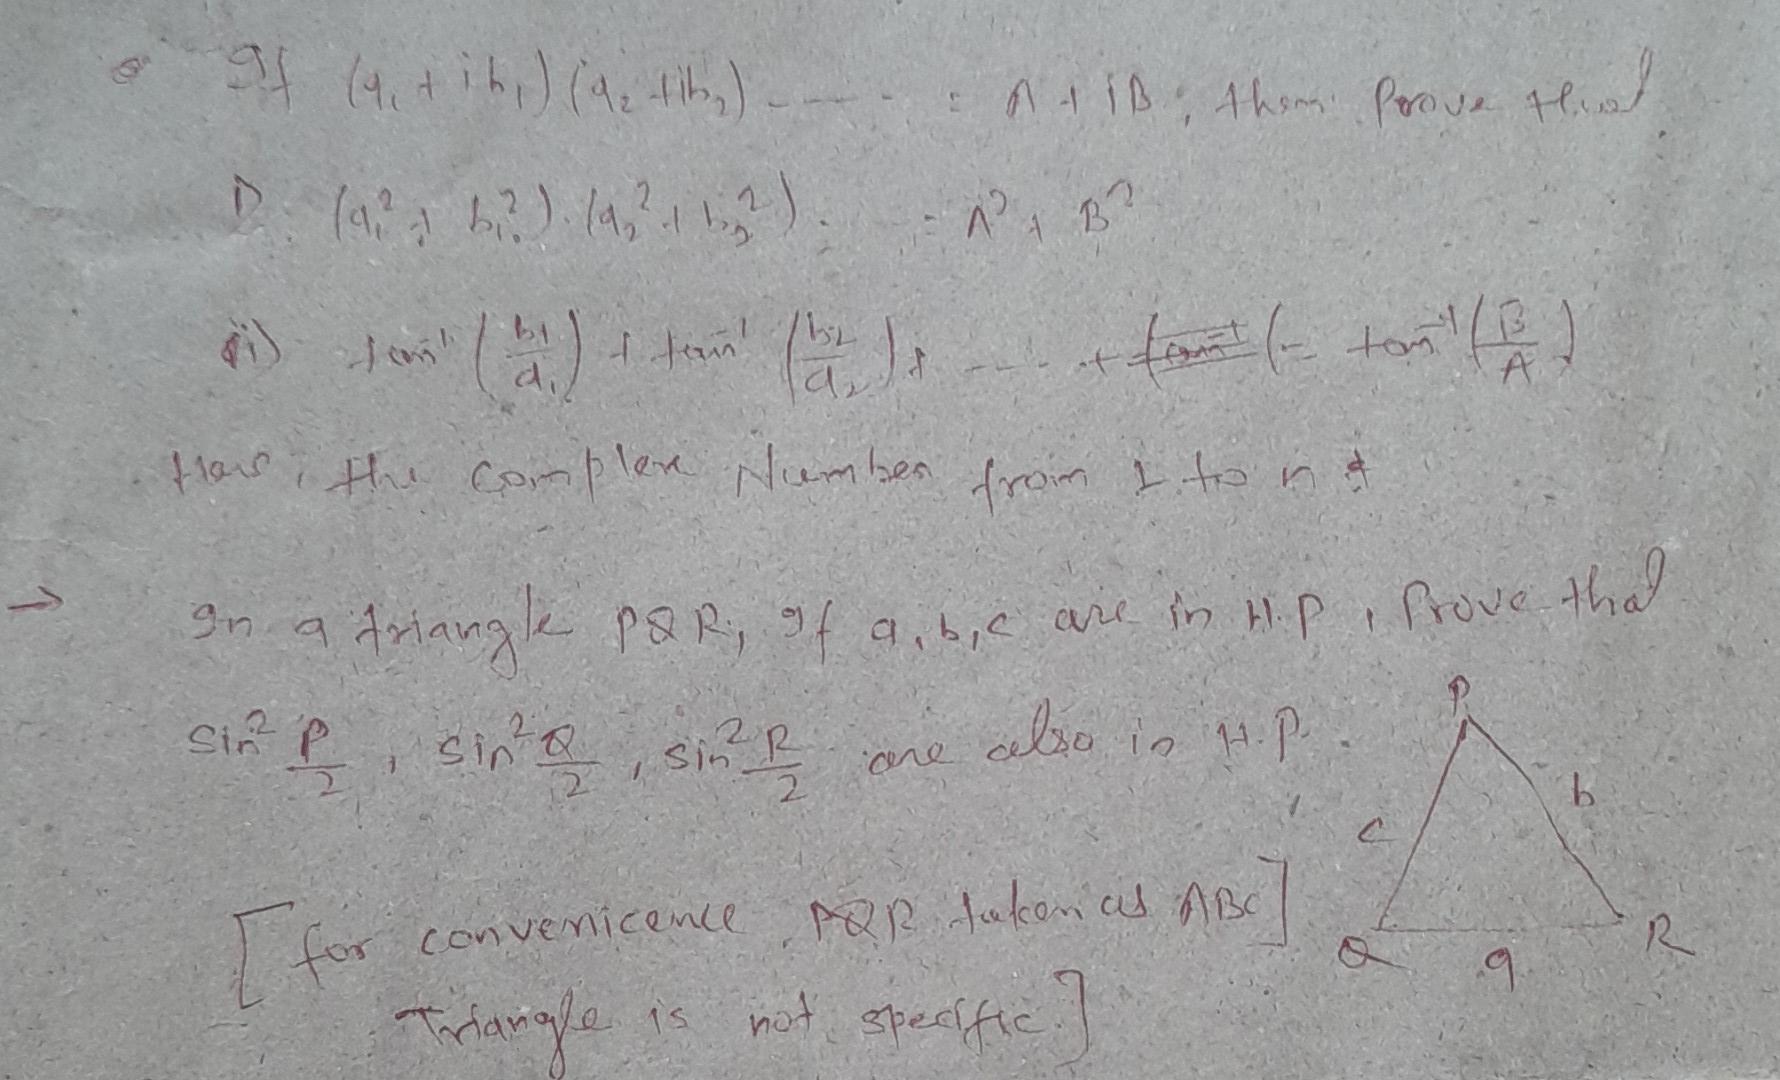 If (a₁ + ib₁) (a₂ + ib₂) ------ = A + iB, then Prove that
i) (a₁² + b₁²) . (a₂² + b₂²) . . = A² + B²
ii) tan⁻¹ (b₁/a₁) + tan⁻¹ (b₂/a₂) + ---- + (= tan⁻¹ (B/A)
the complex Number from 1 to n
→ In a triangle PQR, If a, b, c are in H.P, Prove that
sin² P/2 , sin² Q/2 , sin² R/2 are also in H.P.
P
c
b
Q
a
R
[for convenicence PQR taken as ABC]
Triangle is not specific.]